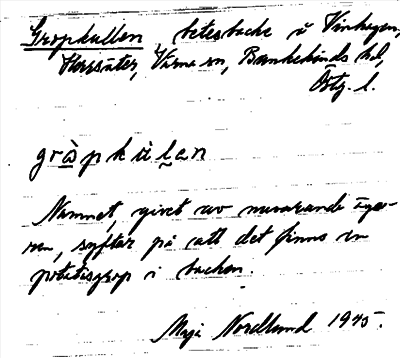 Gropkullen betesbacke i Vinhagen,
Herrsäter, Värna sn, Bankekinds hd,
Östg. l.
gròpkùlan
Namnet, givet av nuvarande äga-
ren, syftar på att det finns en
potatisgrop i backen.
Maja Nordlund 1945.